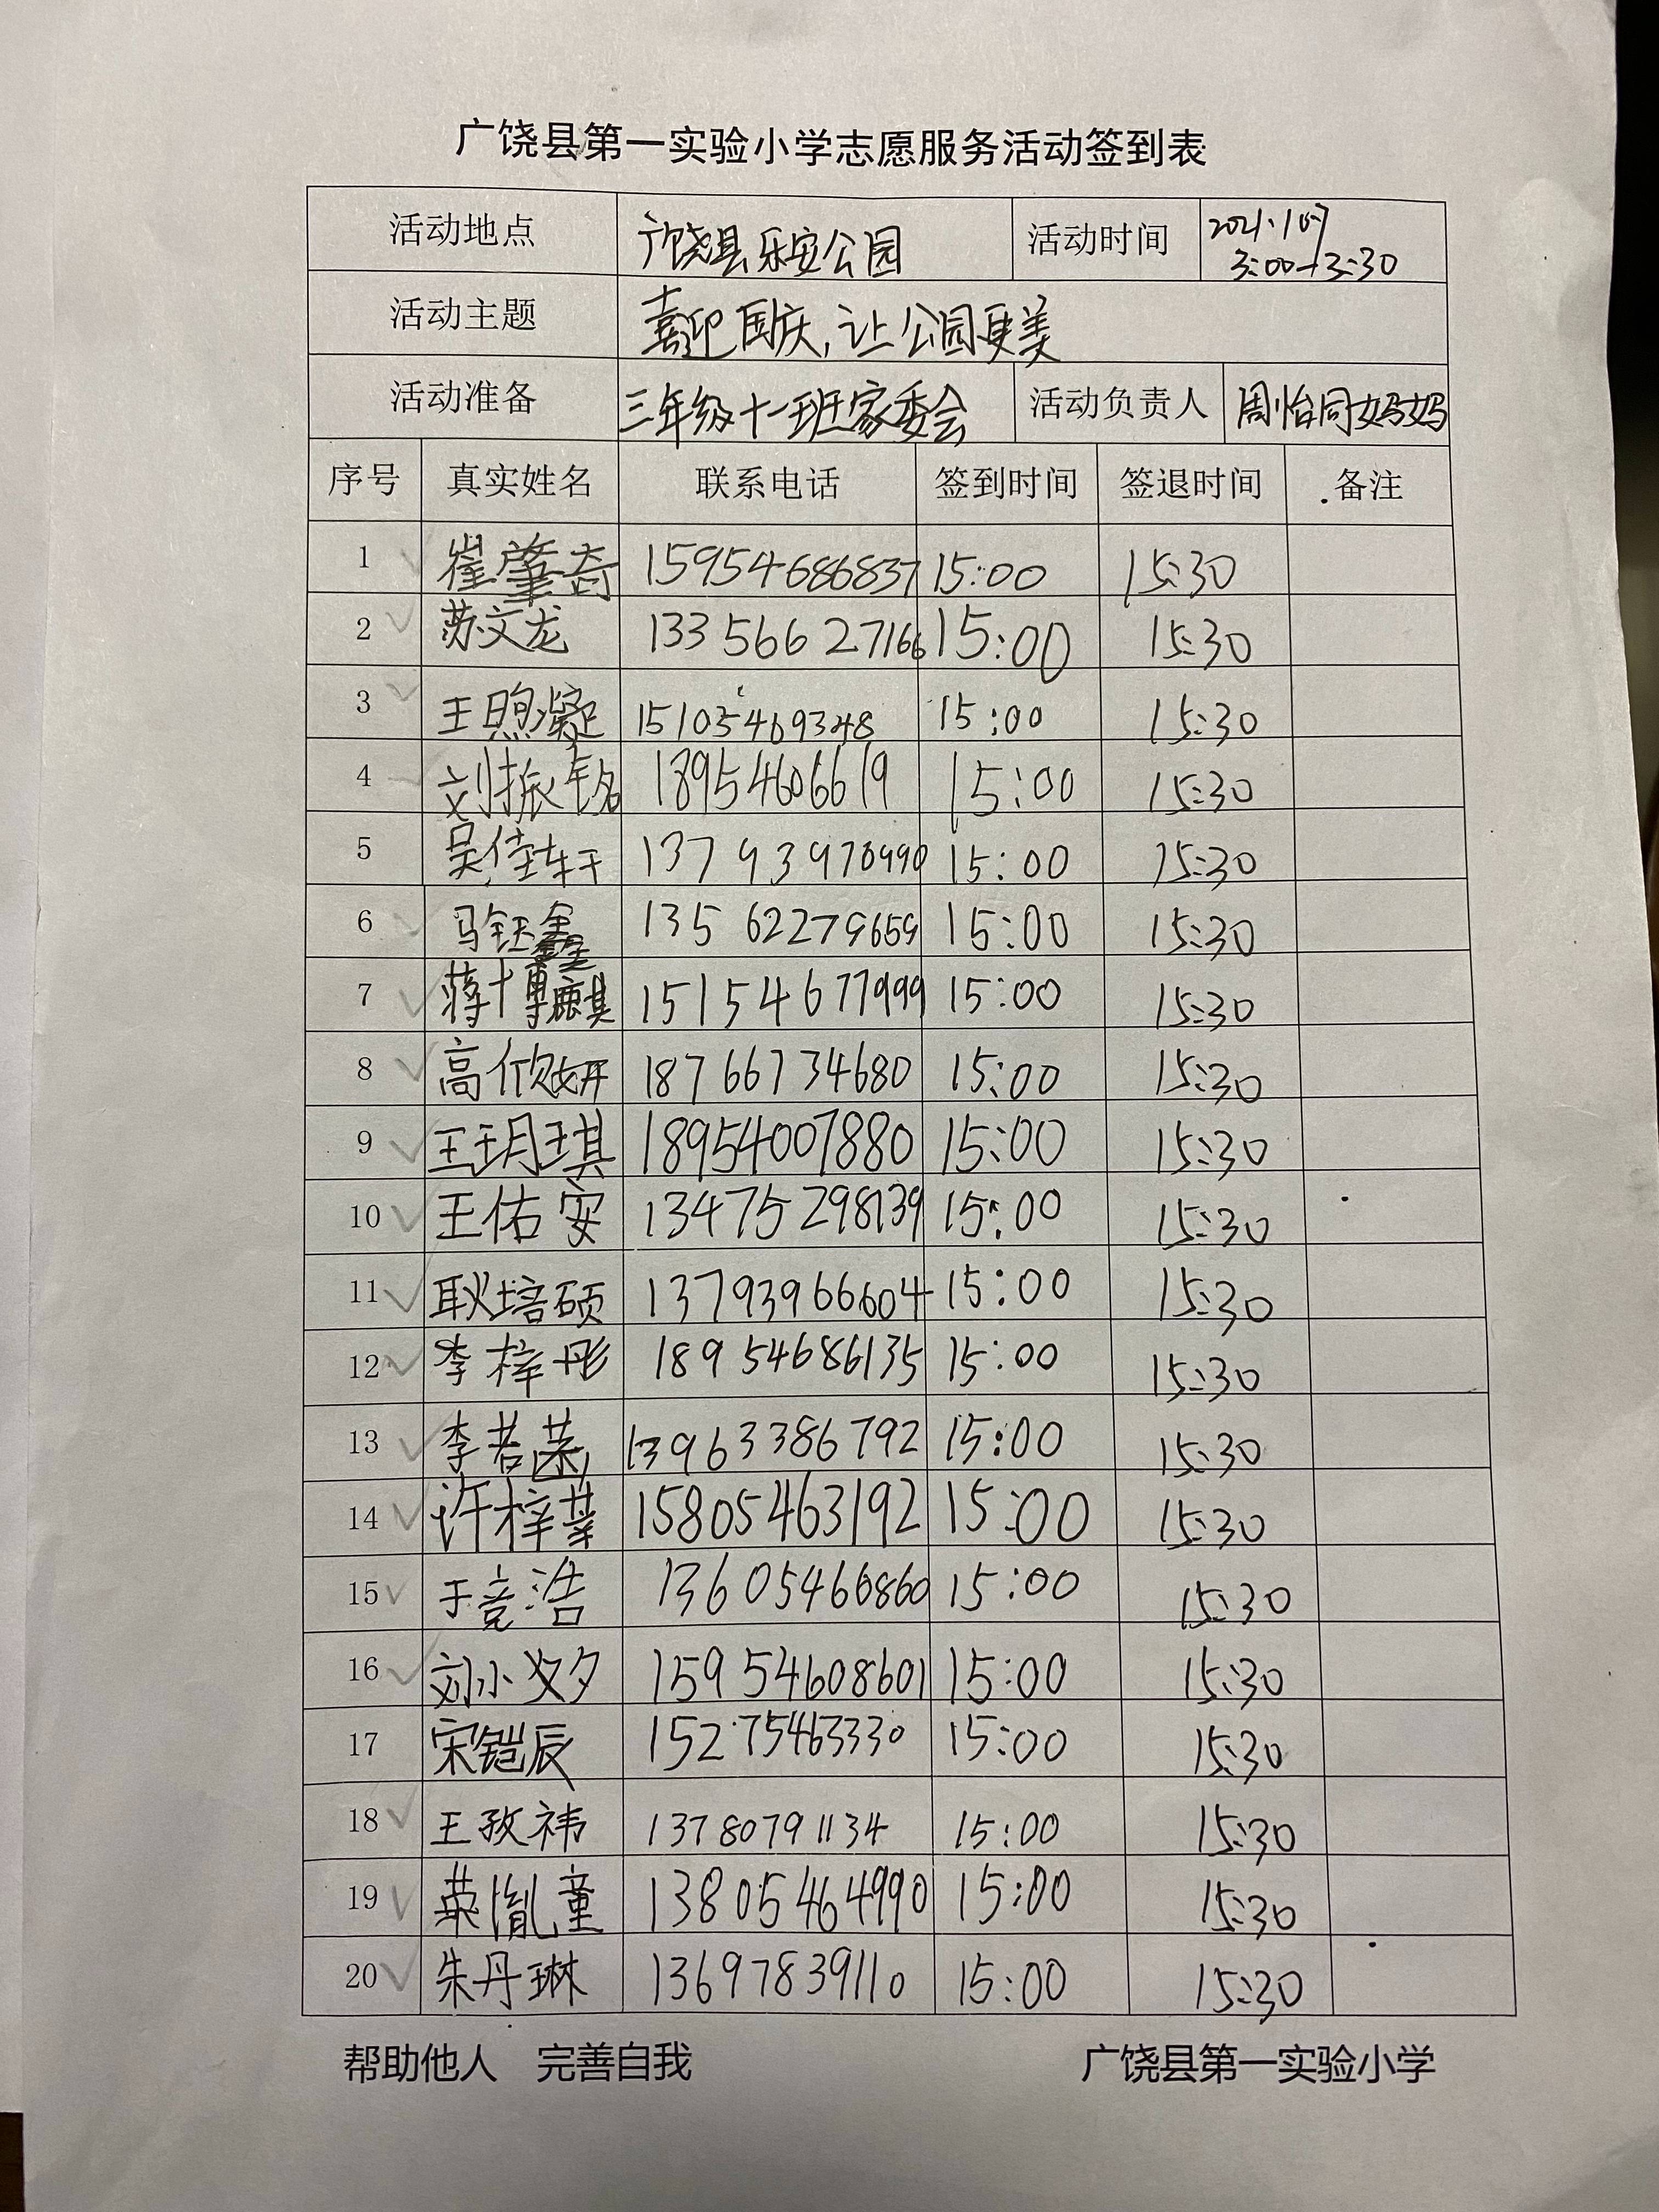 广饶县第一实验小学志愿服务活动签到表
活动地点 广饶县乐安公园 活动时间 2021.10.7
3:00-3:30
活动主题 喜迎国庆,让公园更美
活动准备 三年级十一班家委会 活动负责人 周怡同妈妈
序号 真实姓名 联系电话 签到时间 签退时间 备注
1 崔肇奇 15954686837 15:00 15:30
2 苏文龙 13356627166 15:00 15:30
3 王煦凝 15105469348 15:00 15:30
4 刘振铭 18954606619 15:00 15:30
5 吴佳轩 13793970990 15:00 15:30
6 马钰鑫 13562279659 15:00 15:30
7 蒋博麒 15154677999 15:00 15:30
8 高欣妍 18766734680 15:00 15:30
9 王玥琪 18954007880 15:00 15:30
10 王佑安 13475298139 15:00 15:30
11 耿培硕 13793966604 15:00 15:30
12 李梓彤 18954686135 15:00 15:30
13 李若菡 13963386792 15:00 15:30
14 许梓 15805463192 15:00 15:30
15 于竞浩 13605460860 15:00 15:30
16 刘小 15954608601 15:00 15:30
17 宋铠辰 15275463330 15:00 15:30
18 王孜祎 13780791134 15:00 15:30
19 胤童 13805464990 15:00 15:30
20 朱丹琳 13697839110 15:00 15:30
帮助他人 完善自我 广饶县第一实验小学